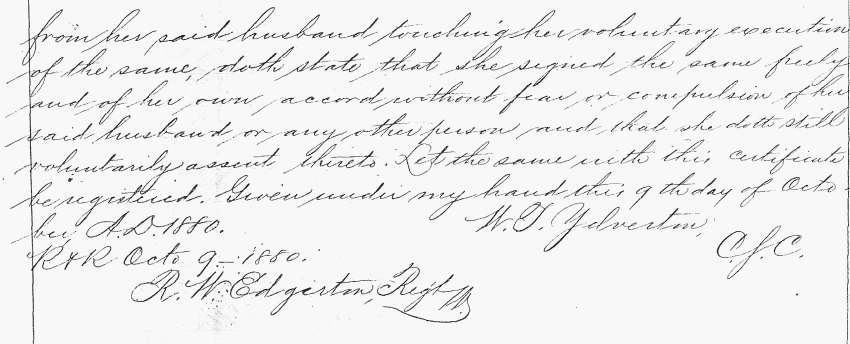 from her said husband touching her voluntary execution
of the same, doth state that she signed the same freely
and of her own accord without fear or compulsion of her
said husband or any other person and that she doth still
voluntarily assent thereto. Let the same with this certificate
be registered. Given under my hand this 9th day of Octo
ber, A.D. 1880. W. T. Yelverton,
C.S.C.
R & R Octo 9 - 1880.
R. W. Edgerton, Regt